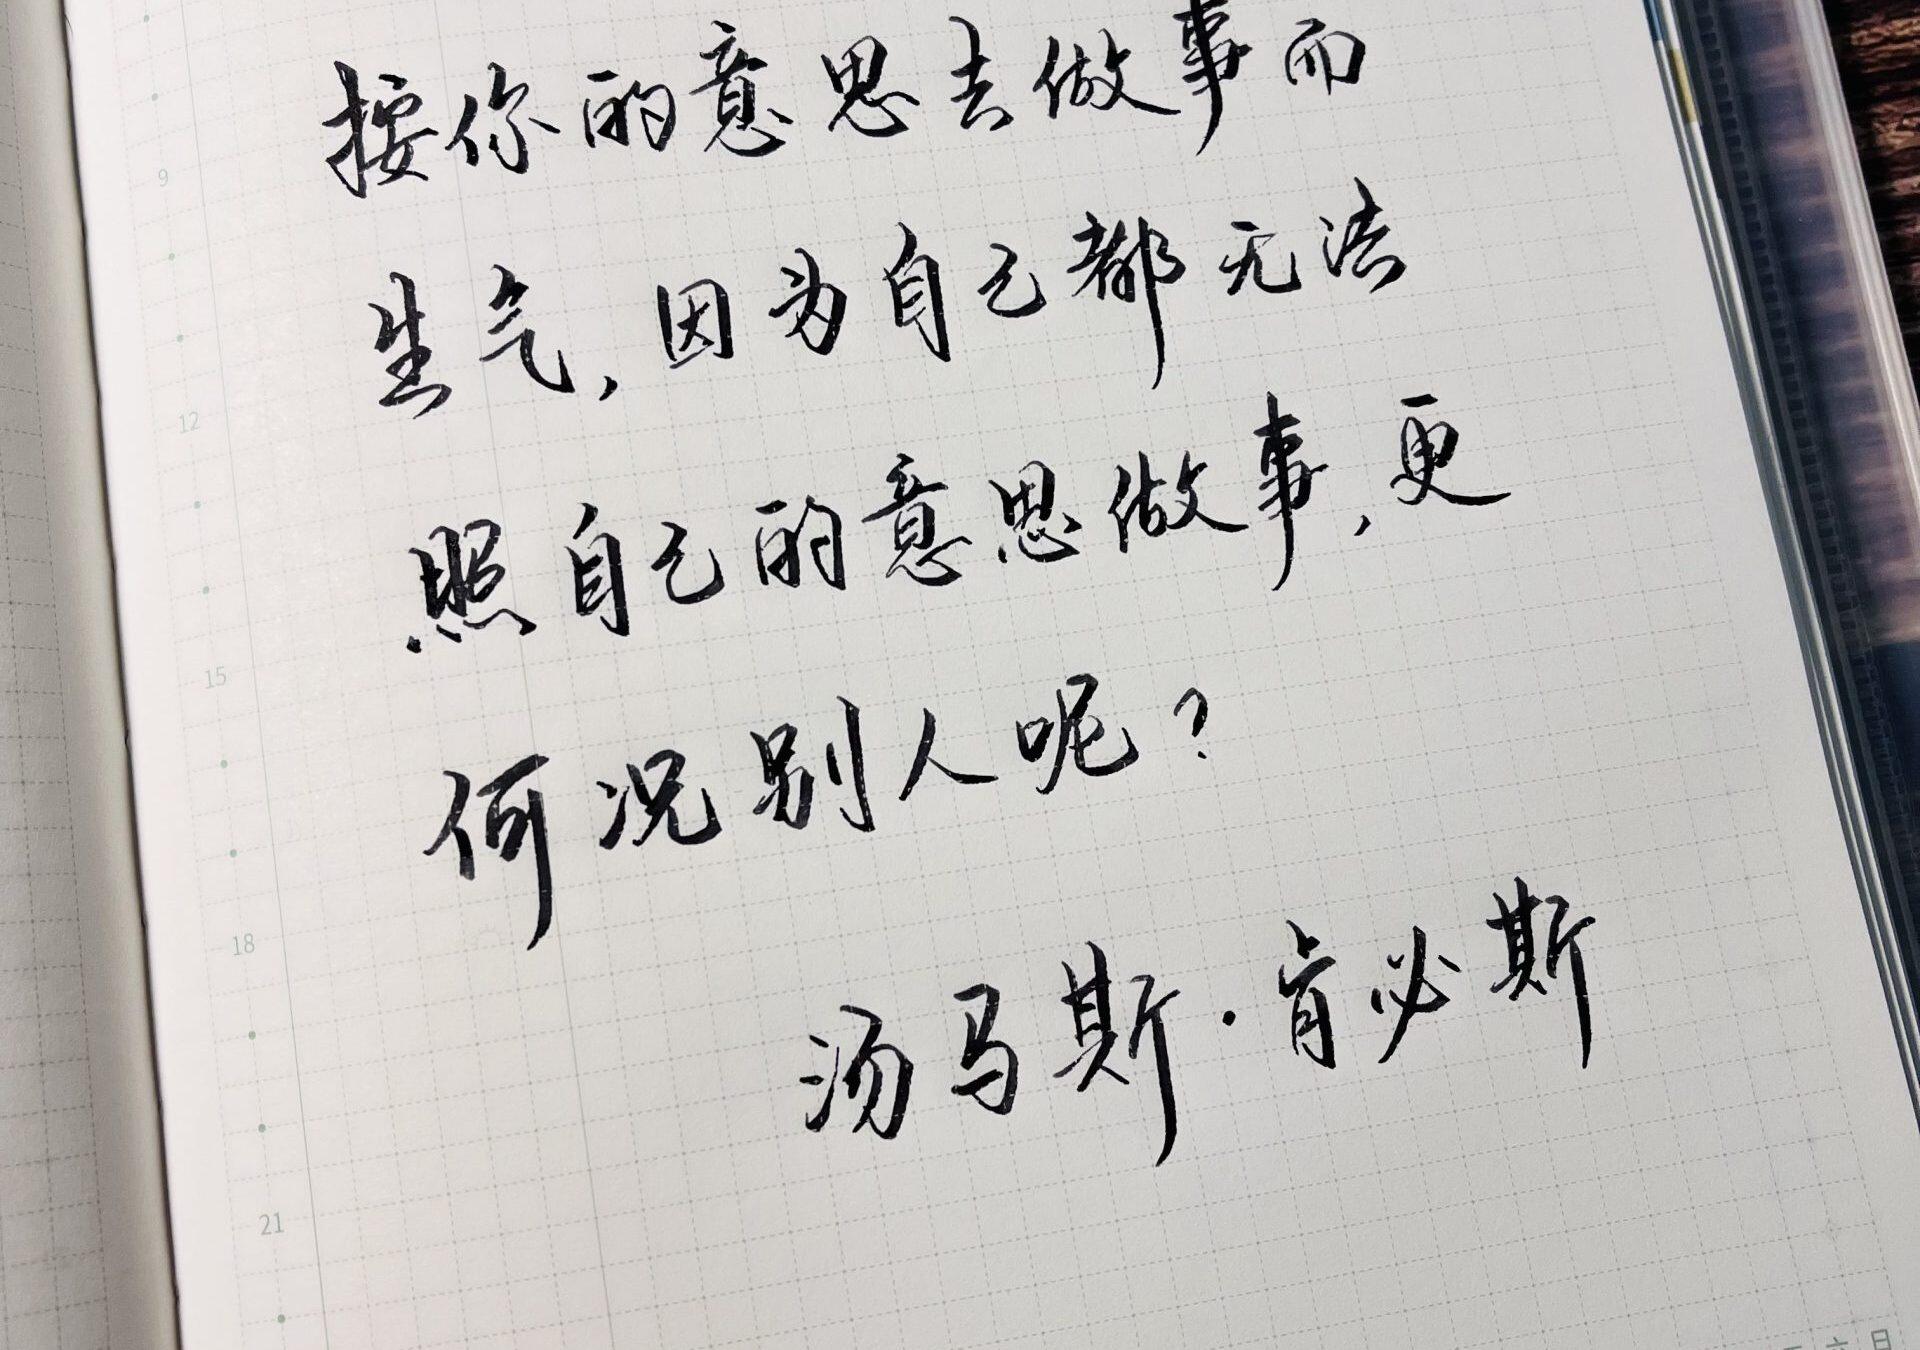 按你的意思去做事而
9
生气，因为自己都无法
12
照自己的意思做事，更
15
何况别人呢？
18
汤马斯·肯必斯
21
六 日